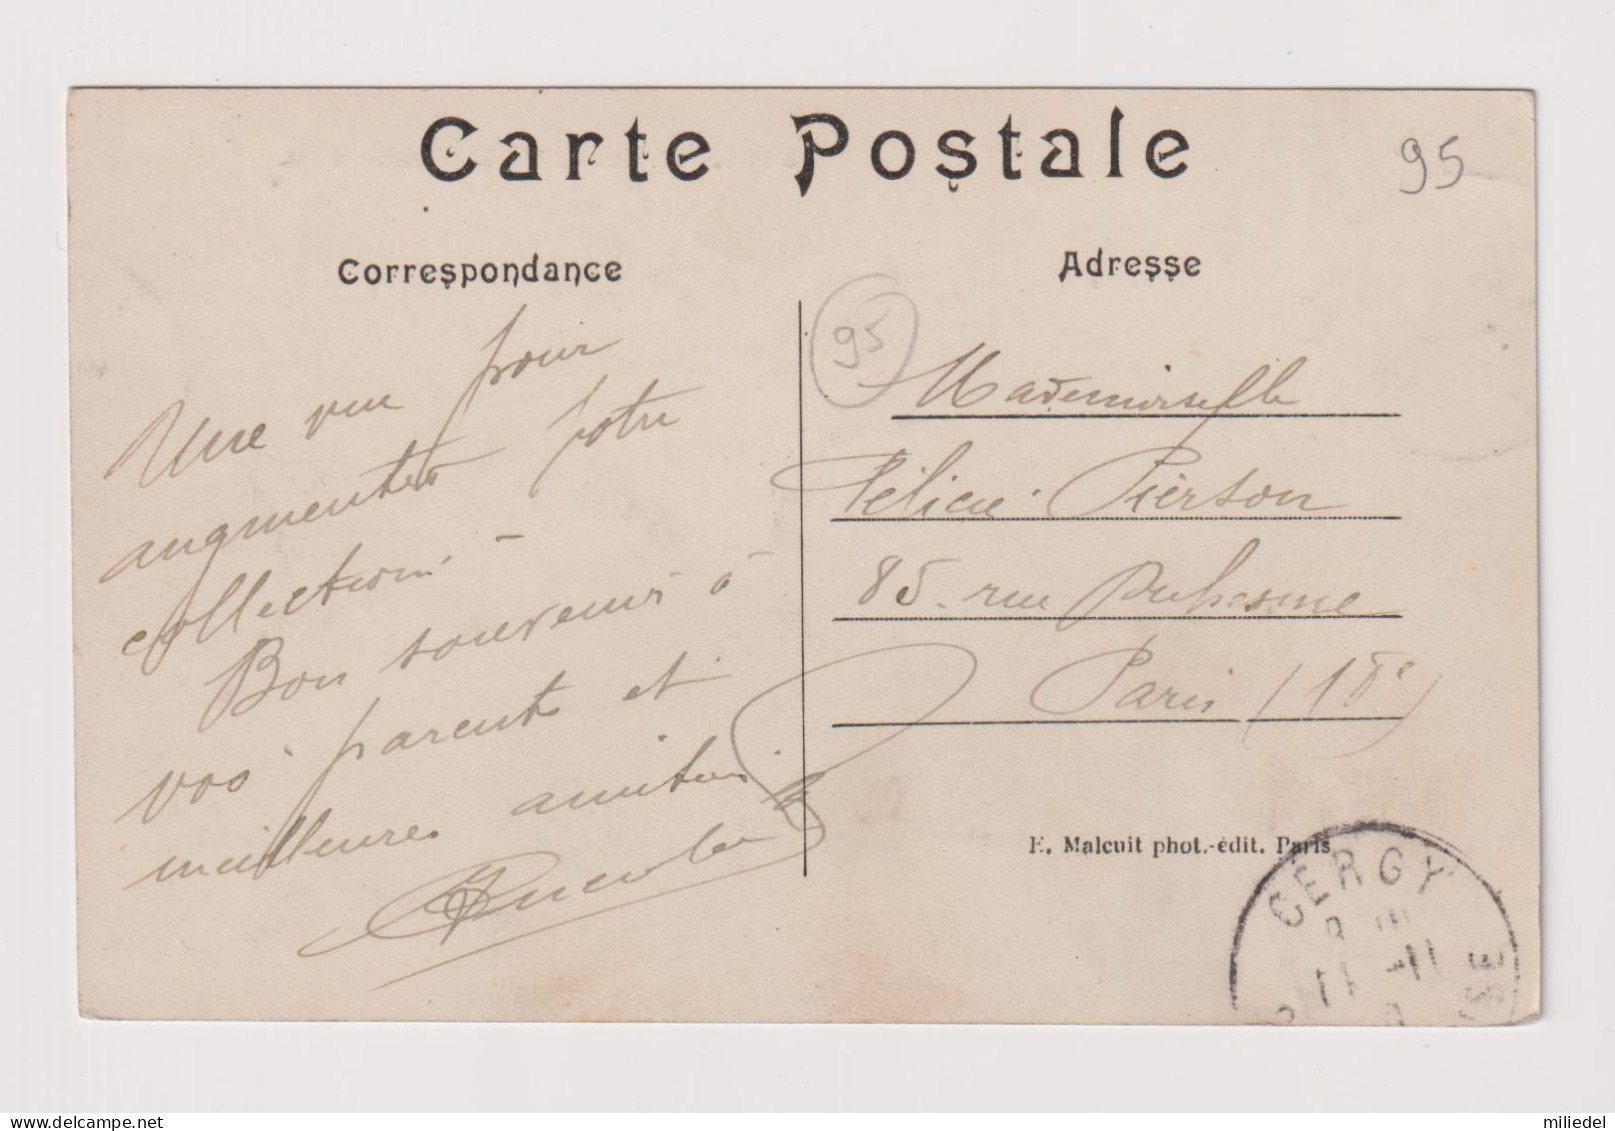 Carte Postale
95
Correspondance
Adresse
Une vue pour
augmenter votre
collection -
Bon souvenir à
vos parents et
meilleures amitiés
95
Mademoiselle
Félicie Pierson
85. rue Duhesme
Paris (18e)
E. Malcuit phot.-édit. Paris
CERGY
11 -11
miliedel